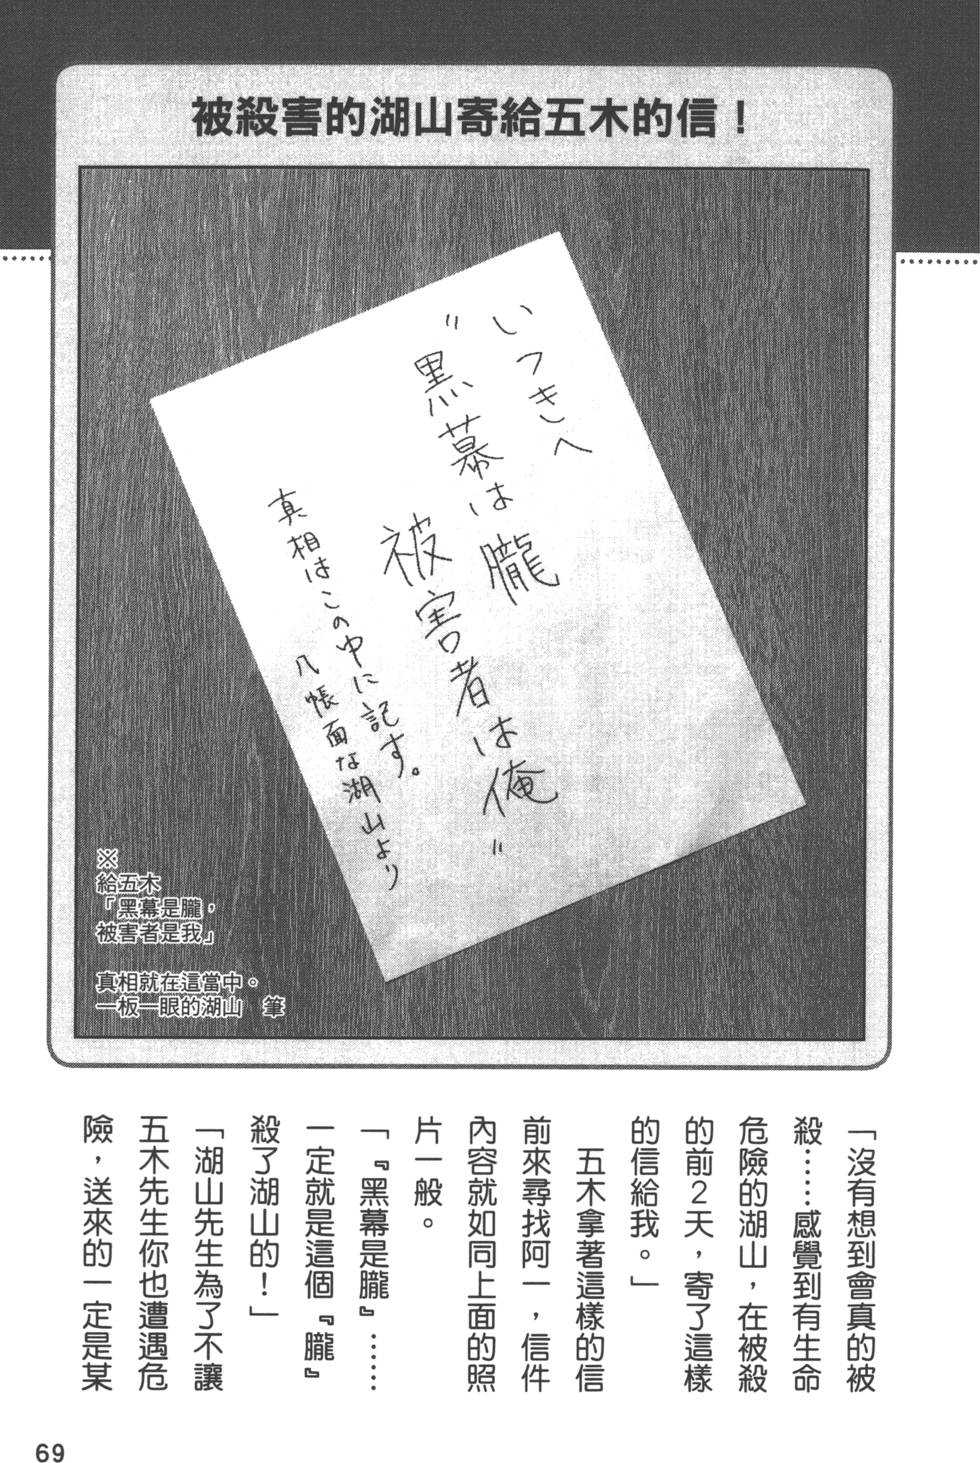 被殺害的湖山寄給五木的信！
いつきへ
〝黒幕は朧
被害者は俺〟
真相はこの中に記す。
几帳面な湖山より
※
給五木
「黑幕是朧，
被害者是我」
真相就在這當中。
一板一眼的湖山　筆
「沒有想到會真的被
殺……感覺到有生命
危險的湖山，在被殺
的前2天，寄了這樣
的信給我。」
五木拿著這樣的信
前來尋找阿一，信件
內容就如同上面的照
片一般。
「『黑幕是朧』……
一定就是這個『朧』
殺了湖山的！」
「湖山先生為了不讓
五木先生你也遭遇危
險，送來的一定是某
69